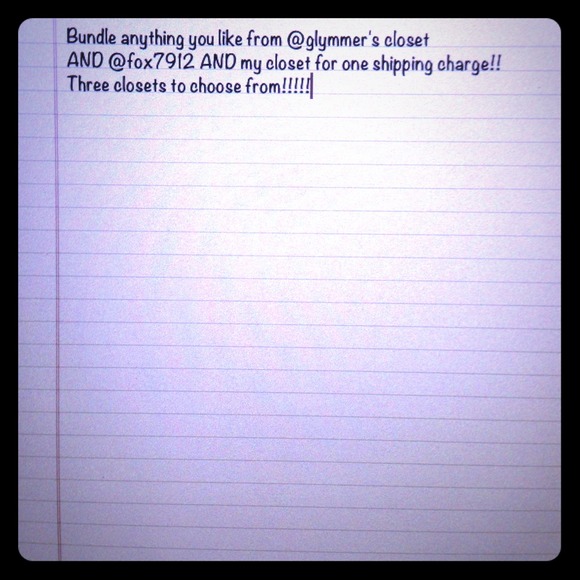 Bundle anything you like from @glymmer's closet
AND @fox7912 AND my closet for one shipping charge!!
Three closets to choose from!!!!!